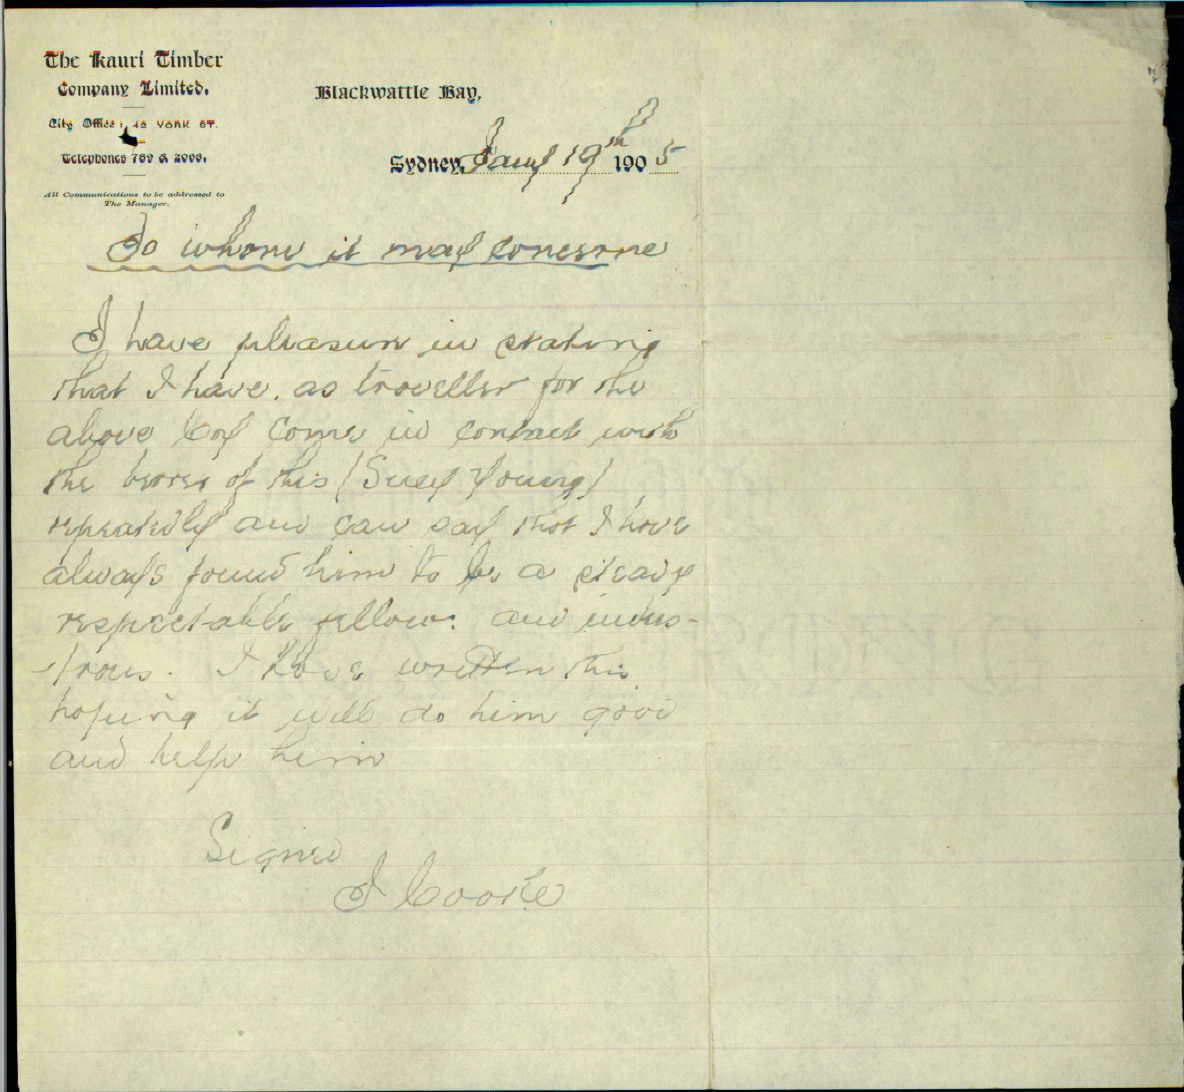 The Kauri Timber
Company Limited.
City Office: 45 YORK ST.
Telephones 789 & 2000.
All Communications to be addressed to
The Manager.
Blackwattle Bay,
Sydney, Jany 19th 1905
To whom it may concerne
I have pleasure in stating
that I have, as traveller for the
above Coy come in contact with
the bearer of this (Suey Young)
repeatedly and can say that I have
always found him to be a steady
respectable fellow: and indus-
-trous. I have written this
hoping it will do him good
and help him
Signed
J Cooke